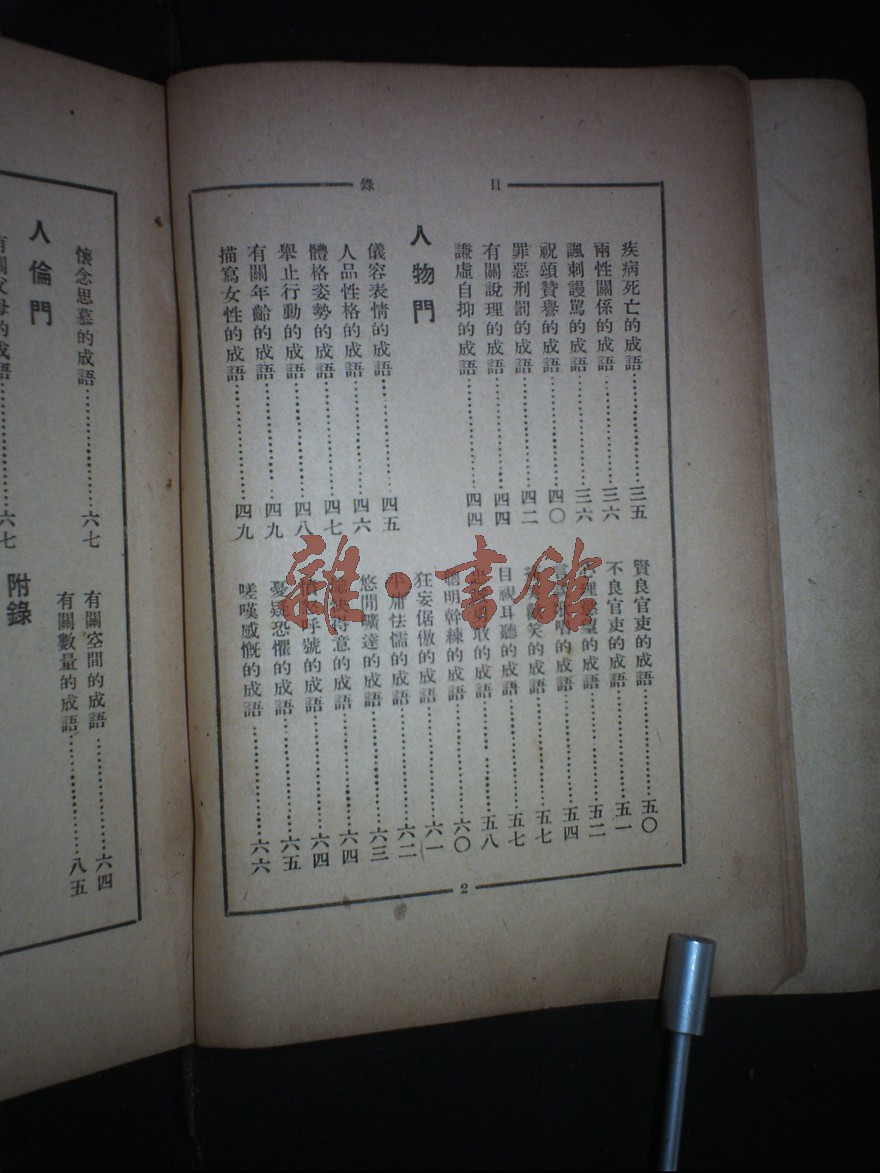 目錄
疾病死亡的成語……………三五
兩性關係的成語……………三六
諷刺謾罵的成語……………三六
祝頌贊譽的成語……………四〇
罪惡刑罰的成語……………四二
有關說理的成語……………四四
謙虛自抑的成語……………四四
人物門
儀容表情的成語……………四五
人品性格的成語……………四六
體格姿勢的成語……………四七
舉止行動的成語……………四八
有關年齡的成語……………四九
描寫女性的成語……………四九
賢良官吏的成語……………五〇
不良官吏的成語……………五一
望的成語……………五二
的成語……………五四
笑的成語……………五七
目視耳聽的成語……………五七
敢的成語……………五八
聰明幹練的成語……………六〇
狂妄倨傲的成語……………六一
平庸怯懦的成語……………六二
悠閒曠達的成語……………六三
得意的成語……………六四
呼號的成語……………六四
憂疑恐懼的成語……………六五
嗟嘆感慨的成語……………六六
2
雜·書館
懷念思慕的成語……………六七
人倫門
有關父母的成語……………六七
有關空間的成語……………六四
有關數量的成語……………八五
附錄